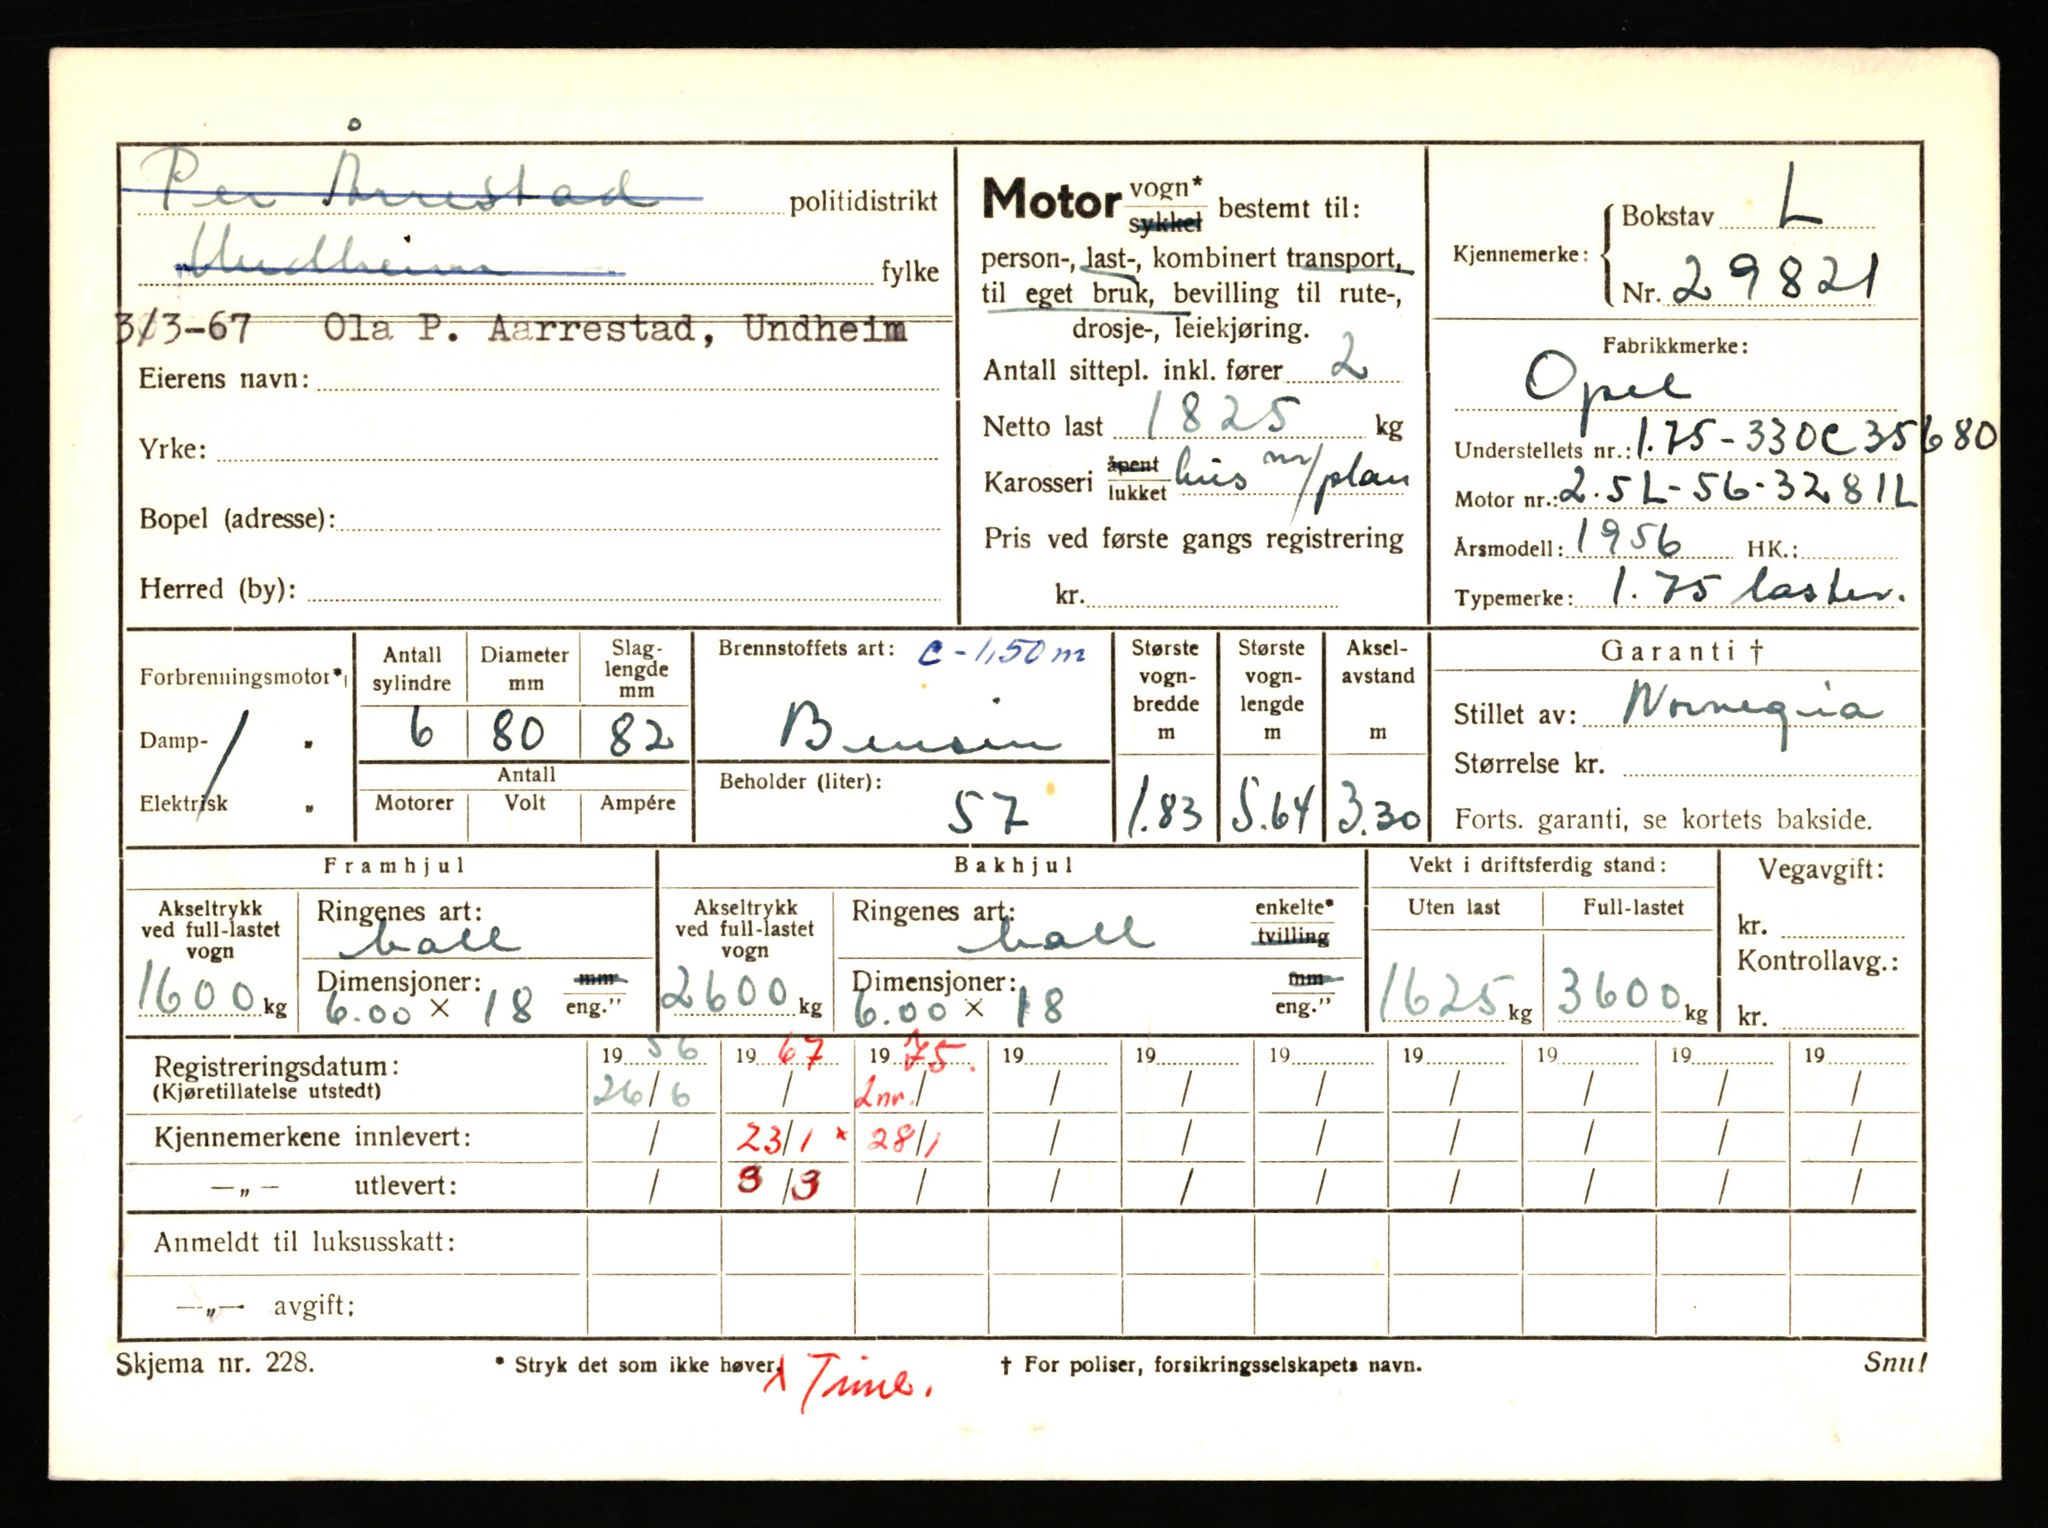 Per Årrestad politidistrikt
Undheim fylke
3/3-67 Ola P. Aarrestad, Undheim
Eierens navn:
Yrke:
Bopel (adresse):
Herred (by):
Motor vogn*
sykkel bestemt til:
person-, last-, kombinert transport,
til eget bruk, bevilling til rute-,
drosje-, leiekjøring.
Antall sittepl. inkl. fører 2
Netto last 1825 kg
Karosseri åpent
lukket hus m/plan
Pris ved første gangs registrering
kr.
Kjennemerke: Bokstav L
Nr. 29821
Fabrikkmerke:
Opel
Understellets nr.: 1.75-330C35680
Motor nr.: 2.5L-56-32811L
Årsmodell: 1956 HK.:
Typemerke: 1.75 laster.
Forbrenningsmotor*
Damp- „
Elektrisk „
Antall sylindre
6
Diameter mm
80
Slag-lengde mm
82
Antall
Motorer Volt Ampére
Brennstoffets art: c-1,50m
Bensin
Beholder (liter):
57
Største vogn-bredde m
1.83
Største vogn-lengde m
5.64
Aksel-avstand m
3.30
Garanti †
Stillet av: Norvegia
Størrelse kr.
Forts. garanti, se kortets bakside.
Framhjul
Akseltrykk ved full-lastet vogn
1600 kg
Ringenes art:
ball
Dimensjoner: mm
6.00 × 18 eng.”
Bakhjul
Akseltrykk ved full-lastet vogn
2600 kg
Ringenes art: enkelte*
ball tvilling
Dimensjoner: mm
6.00 × 18 eng.”
Vekt i driftsferdig stand:
Uten last Full-lastet
1625 kg 3600 kg
Vegavgift:
kr.
Kontrollavg.:
kr.
Registreringsdatum: 1956 1967 1975. 19 19 19 19 19 19 19
(Kjøretillatelse utstedt) 26/6 / 2nr./ / / / / / / /
Kjennemerkene innlevert: / 23/1 x 28/1 / / / / / / /
—„— utlevert: / 3/3 / / / / / / / /
Anmeldt til luksusskatt:
—„— avgift:
Skjema nr. 228. * Stryk det som ikke høver. x Time. † For poliser, forsikringsselskapets navn. Snu!